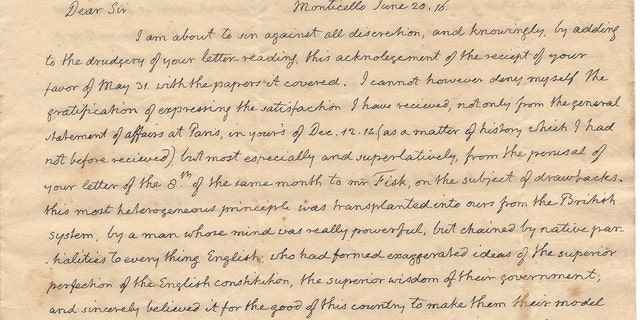 Dear Sir Monticello June 20. 16
I am about to sin against all discretion, and knowingly, by adding
to the drudgery of your letter-reading, this acknolegement of the reciept of your
favor of May 31. with the papers it covered. I cannot however deny myself the
gratification of expressing the satisfaction I have recieved, not only from the general
statement of affairs at Paris, in your's of Dec. 12. 14 (as a matter of history which I had
not before recieved) but most especially and superlatively, from the perusal of
your letter of the 8th of the same month to mr Fisk, on the subject of drawbacks.
this most heterogeneous principle was transplanted into ours from the British
system, by a man whose mind was really powerful, but chained by native par-
tialities to every thing English; who had formed exaggerated ideas of the superior
perfection of the English constitution, the superior wisdom of their government;
and sincerely believed it for the good of this country to make them their model